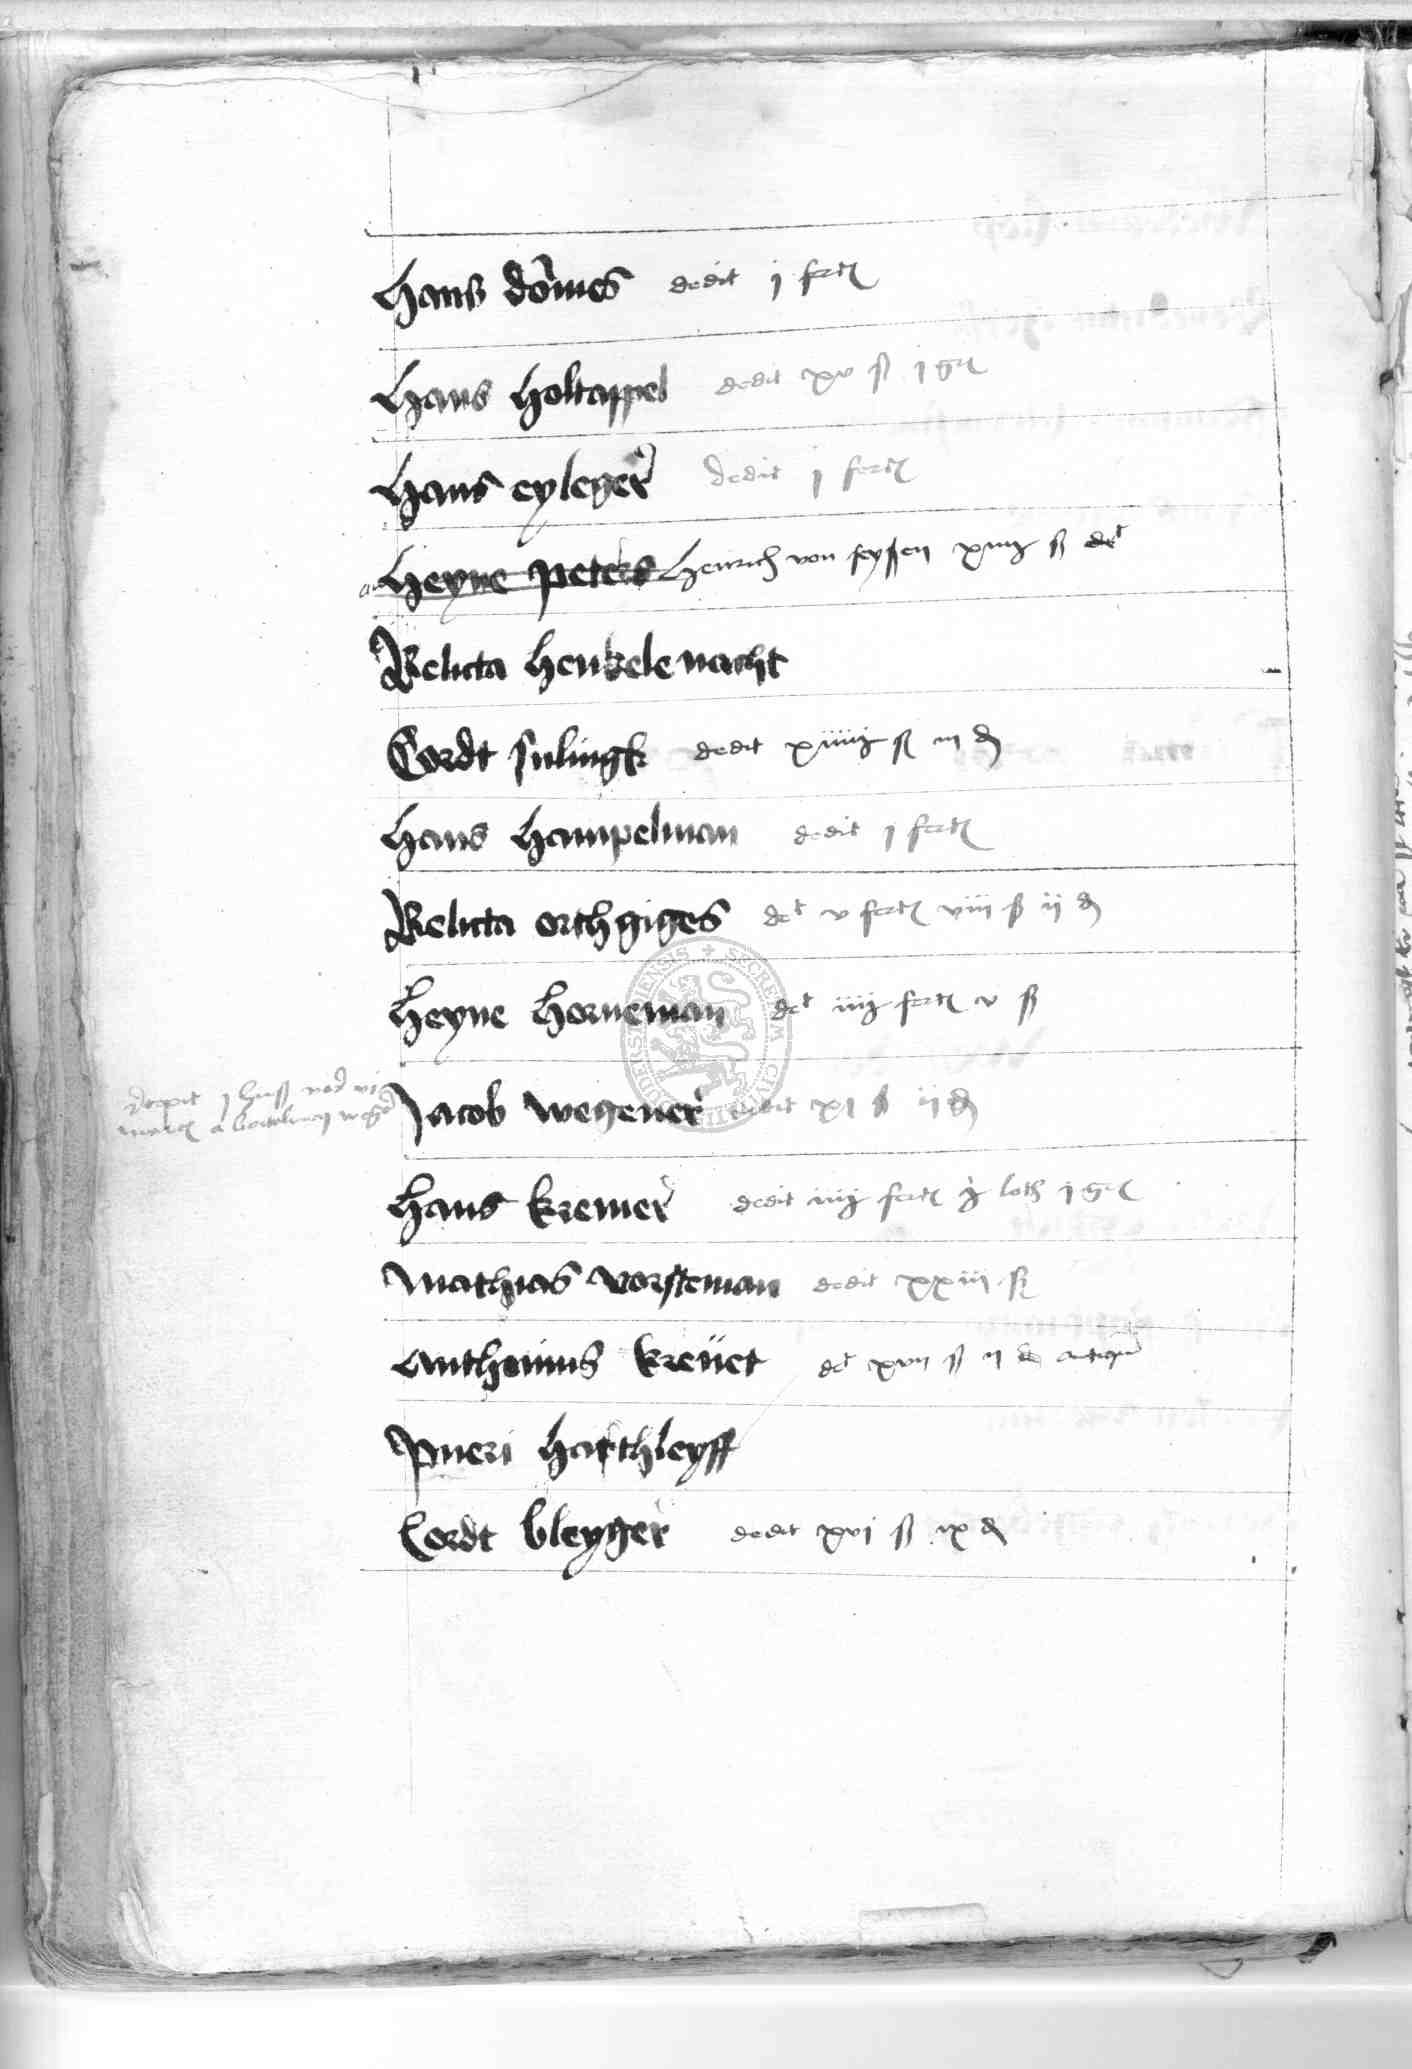 Hans domes dedit j fert
Hans holtappel dedit xv ß j gr
Hans eyleger dedit j fert
Heyne peters Henrich von seyssen xiiij ß det
Relicta henkele nacht
Cordt sulingk dedit xiiiij ß iij d
Hans hampelman dedit j fert
Relicta orthgiges det v fert viii ß ij d
Heyne horneman det iiij fert v ß
Jacob wegener dedit xi ß ij d
Hans kremer dedit iiij fert j loth j gr
Mathias vorsteman dedit xxiii ß
Anthonius kreüet det xvij ß ij d
Pueri harthleyff
Cordt bleyger dedit xvj ß ix d
SECRETUM CIVITATIS DUDERSTADIENSIS